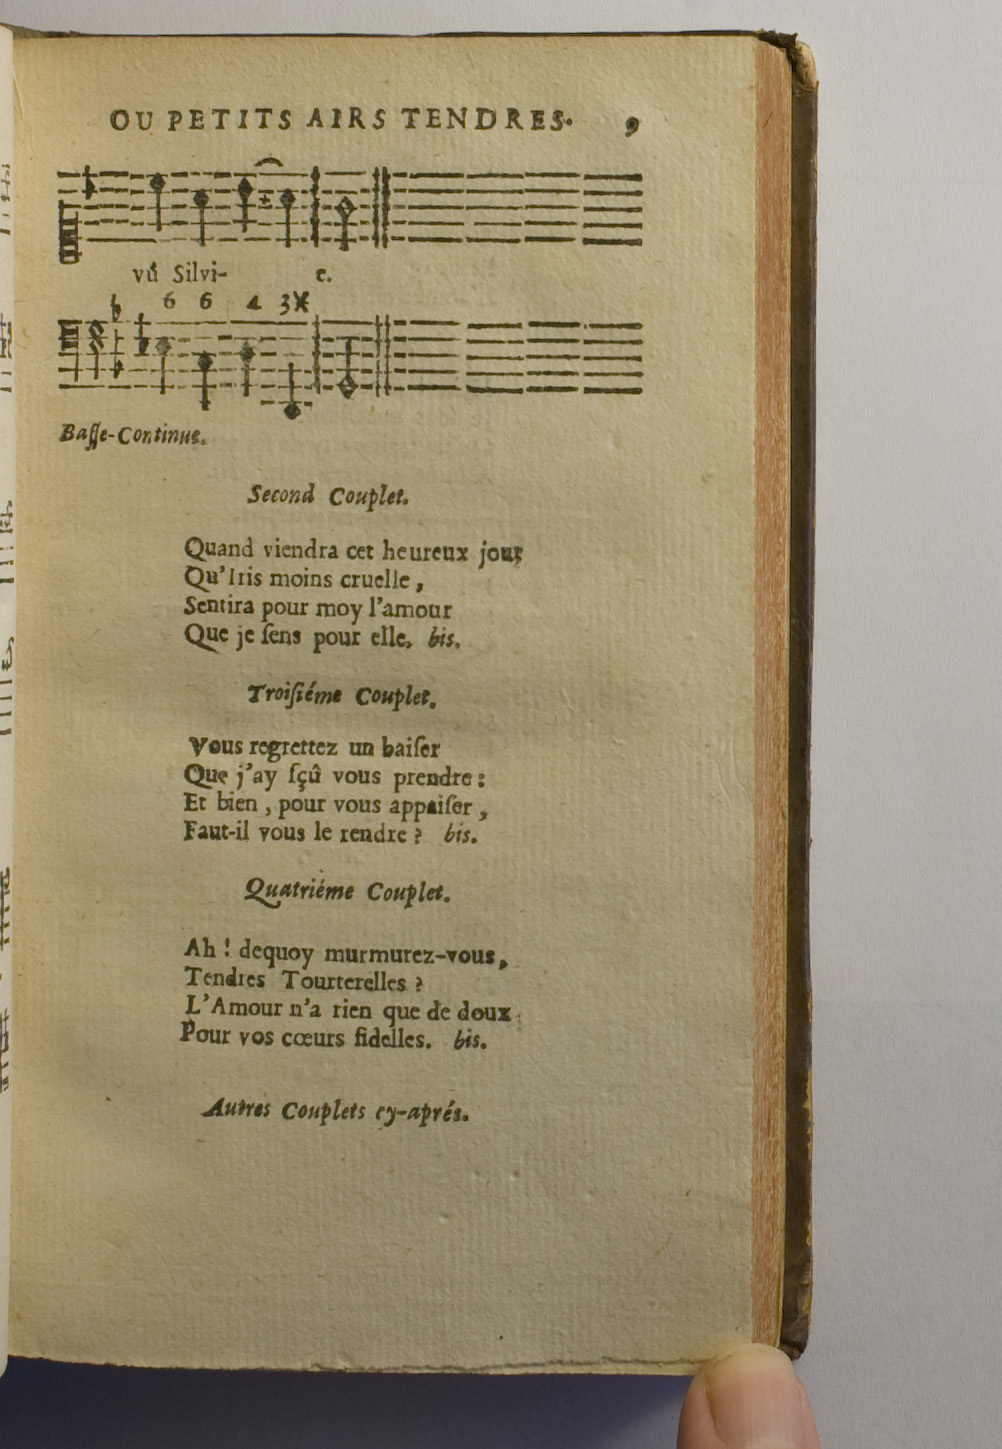 OU PETITS AIRS TENDRES. 9
vû Silvi- e.
6 6 4 3
Basse-Continue.
Second Couplet.
Quand viendra cet heureux jour
Qu'Iris moins cruelle,
Sentira pour moy l'amour
Que je ſens pour elle. bis.
Troiſiéme Couplet.
Vous regrettez un baiſer
Que j'ay ſçû vous prendre:
Et bien, pour vous appaiſer,
Faut-il vous le rendre? bis.
Quatriéme Couplet.
Ah! dequoy murmurez-vous,
Tendres Tourterelles?
L'Amour n'a rien que de doux
Pour vos cœurs fidelles. bis.
Autres Couplets cy-aprés.